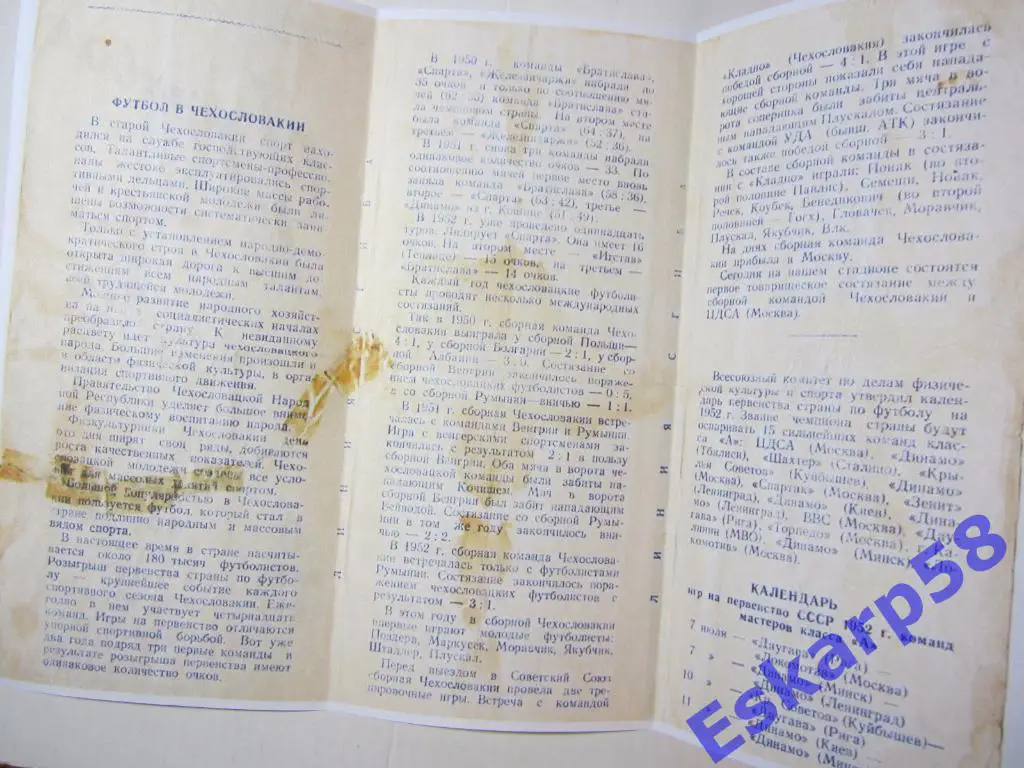 ФУТБОЛ В ЧЕХОСЛОВАКИИ
В старой Чехословакии спорт нахо-
дился на службе господствующих клас-
сов. Талантливые спортсмены-професси-
налы жестоко эксплуатировались спор-
тивными дельцами. Широкие массы рабо-
чей и крестьянской молодежи были ли-
шены возможности систематически зани-
маться спортом.
Только с установлением народно-демо-
кратического строя в Чехословакии была
открыта широкая дорога к высшим до-
стижениям всем народным талантам,
всей трудящейся молодежи.
развитие народного хозяйст-
ва на социалистических началах
преобразило страну. К невиданному
расцвету идет культура чехословацкого
народа. Большие изменения произошли и
в области физической культуры, в орга-
низация спортивного движения.
Правительство Чехословацкой Народ
ной Республики уделяет большое внима
ние физическому воспитанию народа.
Физкультурники Чехословакии
дня ширят свои ряды, добиваются
роста качественных показателей. Чехо-
словацкой молодежи созданы все усло-
для массовых занятий спортом.
Большой популярностью в Чехослова-
кии пользуется футбол, который стал в
стране подлинно народным и массовым
видом спорта.
В настоящее время в стране насчиты-
вается около 180 тысяч футболистов.
Розыгрыш первенства страны по футбо-
лу — крупнейшее событие каждого
спортивного сезона Чехословакии. Еже-
годно в нем участвует четырнадцать
команд. Игры на первенство отличаются
упорной спортивной борьбой. Вот уже
два года подряд три первые команды в
результате розыгрыша первенства имеют
одинаковое количество очков.
В 1950 г. команды «Братислава»,
«Спарта», «Железничаржи» набрали по
35 очков и только по соотношению мя-
чей (62:33) команда «Братислава» ста-
ла чемпионом страны. На втором месте
была команда «Спарта» (64:37),
третье — «Железничаржи» (52:36).
В 1951 г. снова три команды набрали
одинаковое количество очков — 33. По
соотношению мячей первое место вновь
заняла команда «Братислава» (58:36),
второе — «Спарта» (63:42), третье —
«Динамо» из г. Кошице (51:49).
В 1952 г. уже проведено одиннадцать
туров. Лидирует «Спарта». Она имеет 16
очков. На втором месте — «Ингстав»
(Теплице) — 15 очков, на третьем —
«Братислава» — 14 очков.
Каждый год чехословацкие футболи-
сты проводят несколько международных
состязаний.
Так в 1950 г. сборная команда Чехо-
словакии выиграла у сборной Польши—
4:1, у сборной Болгарии — 2:1, у сбор-
ной Албании — 3:0. Состязание со
сборной Венгрии закончилось пораже-
нием чехословацких футболистов — 0:5,
а со сборной Румынии—вничью — 1:1.
В 1951 г. сборная Чехословакии встре-
чалась с командами Венгрии и Румынии.
Игра с венгерскими спортсменами за-
кончилась с результатом 2:1 в пользу
сборной Венгрии. Оба мяча в ворота че-
хословацкой команды были забиты на-
падающим Кочишем. Мяч в ворота
сборной Венгрии был забит нападающим
Вейводой. Состязание со сборной Румы-
нии в том же году закончилось вни-
чью — 2:2.
В 1952 г. сборная команда Чехослова-
кии встречалась только с футболистами
Румынии. Состязание закончилось пора-
жением чехословацких футболистов с
результатом — 3:1.
В этом году в сборной Чехословакии
впервые играют молодые футболисты:
Поддера, Маркусек, Моравчик, Якубчик,
Шталлер, Плускал.
Перед выездом в Советский Союз
сборная Чехословакии провела две тре-
нировочные игры. Встреча с командой
«Кладно» (Чехословакия) закончилась
победой сборной — 4:1. В этой игре с
хорошей стороны показали себя напада-
ющие сборной команды. Три мяча в во-
рота соперника были забиты централь-
ным нападающим Плускалом. Состязание
с командой УДА (бывш. АТК) закончи-
лось также победой сборной — 3:1.
В составе сборной команды в состяза-
нии с «Кладно» играли: Ионак (во вто-
рой половине Павлис), Семеши, Новак,
Речек, Коубек, Бенедикович (во второй
половине — Гогх), Гловачек, Моравчик,
Плускал, Якубчик, Влк.
На днях сборная команда Чехослова-
кии прибыла в Москву.
Сегодня на нашем стадионе состоится
первое товарищеское состязание между
сборной командой Чехословакии и
ЦДСА (Москва).
Всесоюзный комитет по делам физиче-
ской культуры и спорта утвердил кален-
дарь первенства страны по футболу на
1952 г. Звание чемпиона страны будут
оспаривать 15 сильнейших команд клас-
са «А»: ЦДСА (Москва), «Динамо»
(Тбилиси), «Шахтер» (Сталино), «Кры-
лья Советов» (Куйбышев), «Динамо»
(Москва), «Спартак» (Москва), «Зенит»
(Ленинград), «Динамо» (Киев), «Дина-
мо» (Ленинград), ВВС (Москва), «Дау-
гава» (Рига), «Торпедо» (Москва), г. Ка-
линин (МВО), «Динамо» (Минск), «Ло-
комотив» (Москва).
КАЛЕНДАРЬ
игр на первенство СССР 1952 г. команд
мастеров класса «А»
7 июля — «Даугава» (Рига) —
«Локомотив» (Москва)
7 » — «Динамо» (Минск) —
«Динамо» (Ленинград)
10 » — «Кр. Советов» (Куйбышев)—
«Даугава» (Рига)
11 » — «Динамо» (Киев) —
«Динамо» (Минск)
Eskarp58